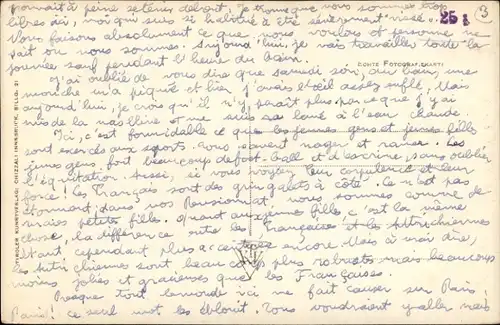 pouvait à peine se tenir debout. Je trouve que nous sommes trop
libres ici, moi qui suis si habituée à être sévèrement
Nous faisons absolument ce que nous voulons et personne ne
sait où nous sommes. Aujourd'hui, je vais travailler toute la
journée sauf pendant l'heure du bain.
J'ai oublié de vous dire que samedi soir, au bain, une
mouche m'a piquée et hier j'avais l'œil assez enflé. Mais
aujourd'hui, je crois qu'il n'y paraît plus parce que j'ai
mis de la vaseline et me suis lavé à l'eau chaude.
Ici, c'est formidable ce que les jeunes gens et jeunes filles
sont exercés aux sports. Tous savent nager et ramer. Les
jeunes gens font beaucoup de foot-ball et d'escrime, sans oublier
l'équitation. Aussi, si vous voyiez leur corpulence et leur
force! les Français sont des gringalets à côté. Ce n'est pas
étonnant, dans nos Pensionnats, nous sommes comme de
vraies petites filles. Quant aux jeunes filles, c'est la même
chose, la différence entre les Françaises et les Autrichiennes
étant cependant plus accentuée encore. Mais à vrai dire,
les Autrichiennes sont beaucoup plus robustes mais beaucoup
moins jolies et gracieuses que les Françaises.
Presque tout le monde ici me fait causer sur Paris!
Paris! ce seul mot les éblouit. Tous voudraient y aller mais
25
3
ECHTE FOTOGRAFIKARTE
TIROLER KUNSTVERLAG CHIZZALI INNSBRUCK, BILLG. 21